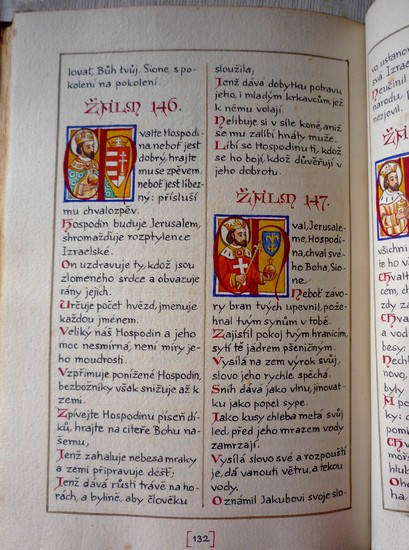 lovat, Bůh tvůj, Sione, s po-
kolení na pokolení.
ŽALM 146.
valte Hospodi-
na, neboř jest
dobrý, hrajte
mu se zpěvem,
neboř jest líbez-
ný: přísluší
mu chvalozpěv.
Hospodin buduje Jerusalem,
shromažďuje rozptýlence
Izraelské.
On uzdravuje ty, kdož jsou
zlomeného srdce a obvazuje
rány jejich.
Určuje počet hvězd, jmenuje
každou jménem.
Veliký náš Hospodin a jeho
moc nesmírná, není míry je-
ho moudrosti.
Vzpřimuje ponížené Hospodin,
bezbožníky však snižuje až k
zemi.
Zpívejte Hospodinu píseň dí-
ků, hrajte na citeře Bohu na-
šemu,
Jenž zahaluje nebesa mraky
a zemi připravuje déšť;
Jenž dává růsti trávě na ho-
rách, a bylině, aby člověku
sloužila;
Jenž dává dobytku potravu
jeho, i mladým krkavcům, jež
k němu volají.
Nelibuje si v síle koně, aniž
se mu zalíbí hnáty muže.
Líbí se Hospodinu ti, kdož
se ho bojí, kdož důvěřují v
jeho dobrotu.
ŽALM 147.
val, Jerusale-
me, Hospodi-
na, chval své-
ho Boha, Sio-
ne.
Neboř závo-
ry bran tvých upevnil, pože-
hnal tvým synům v tobě.
Zajistil pokoj tvým hranicím,
sytí tě jádrem pšeničným.
Vysílá na zem výrok svůj,
slovo jeho rychle spěchá.
Sníh dává jako vlnu, jinovat-
ku jako popel sype.
Jako kusy chleba metá svůj
led, před jeho mrazem vody
zamrzají.
Vysílá slovo své a rozpouští
je, dá vanouti větru, a tekou
vody.
Oznámil Jakubovi svoje slo-
132